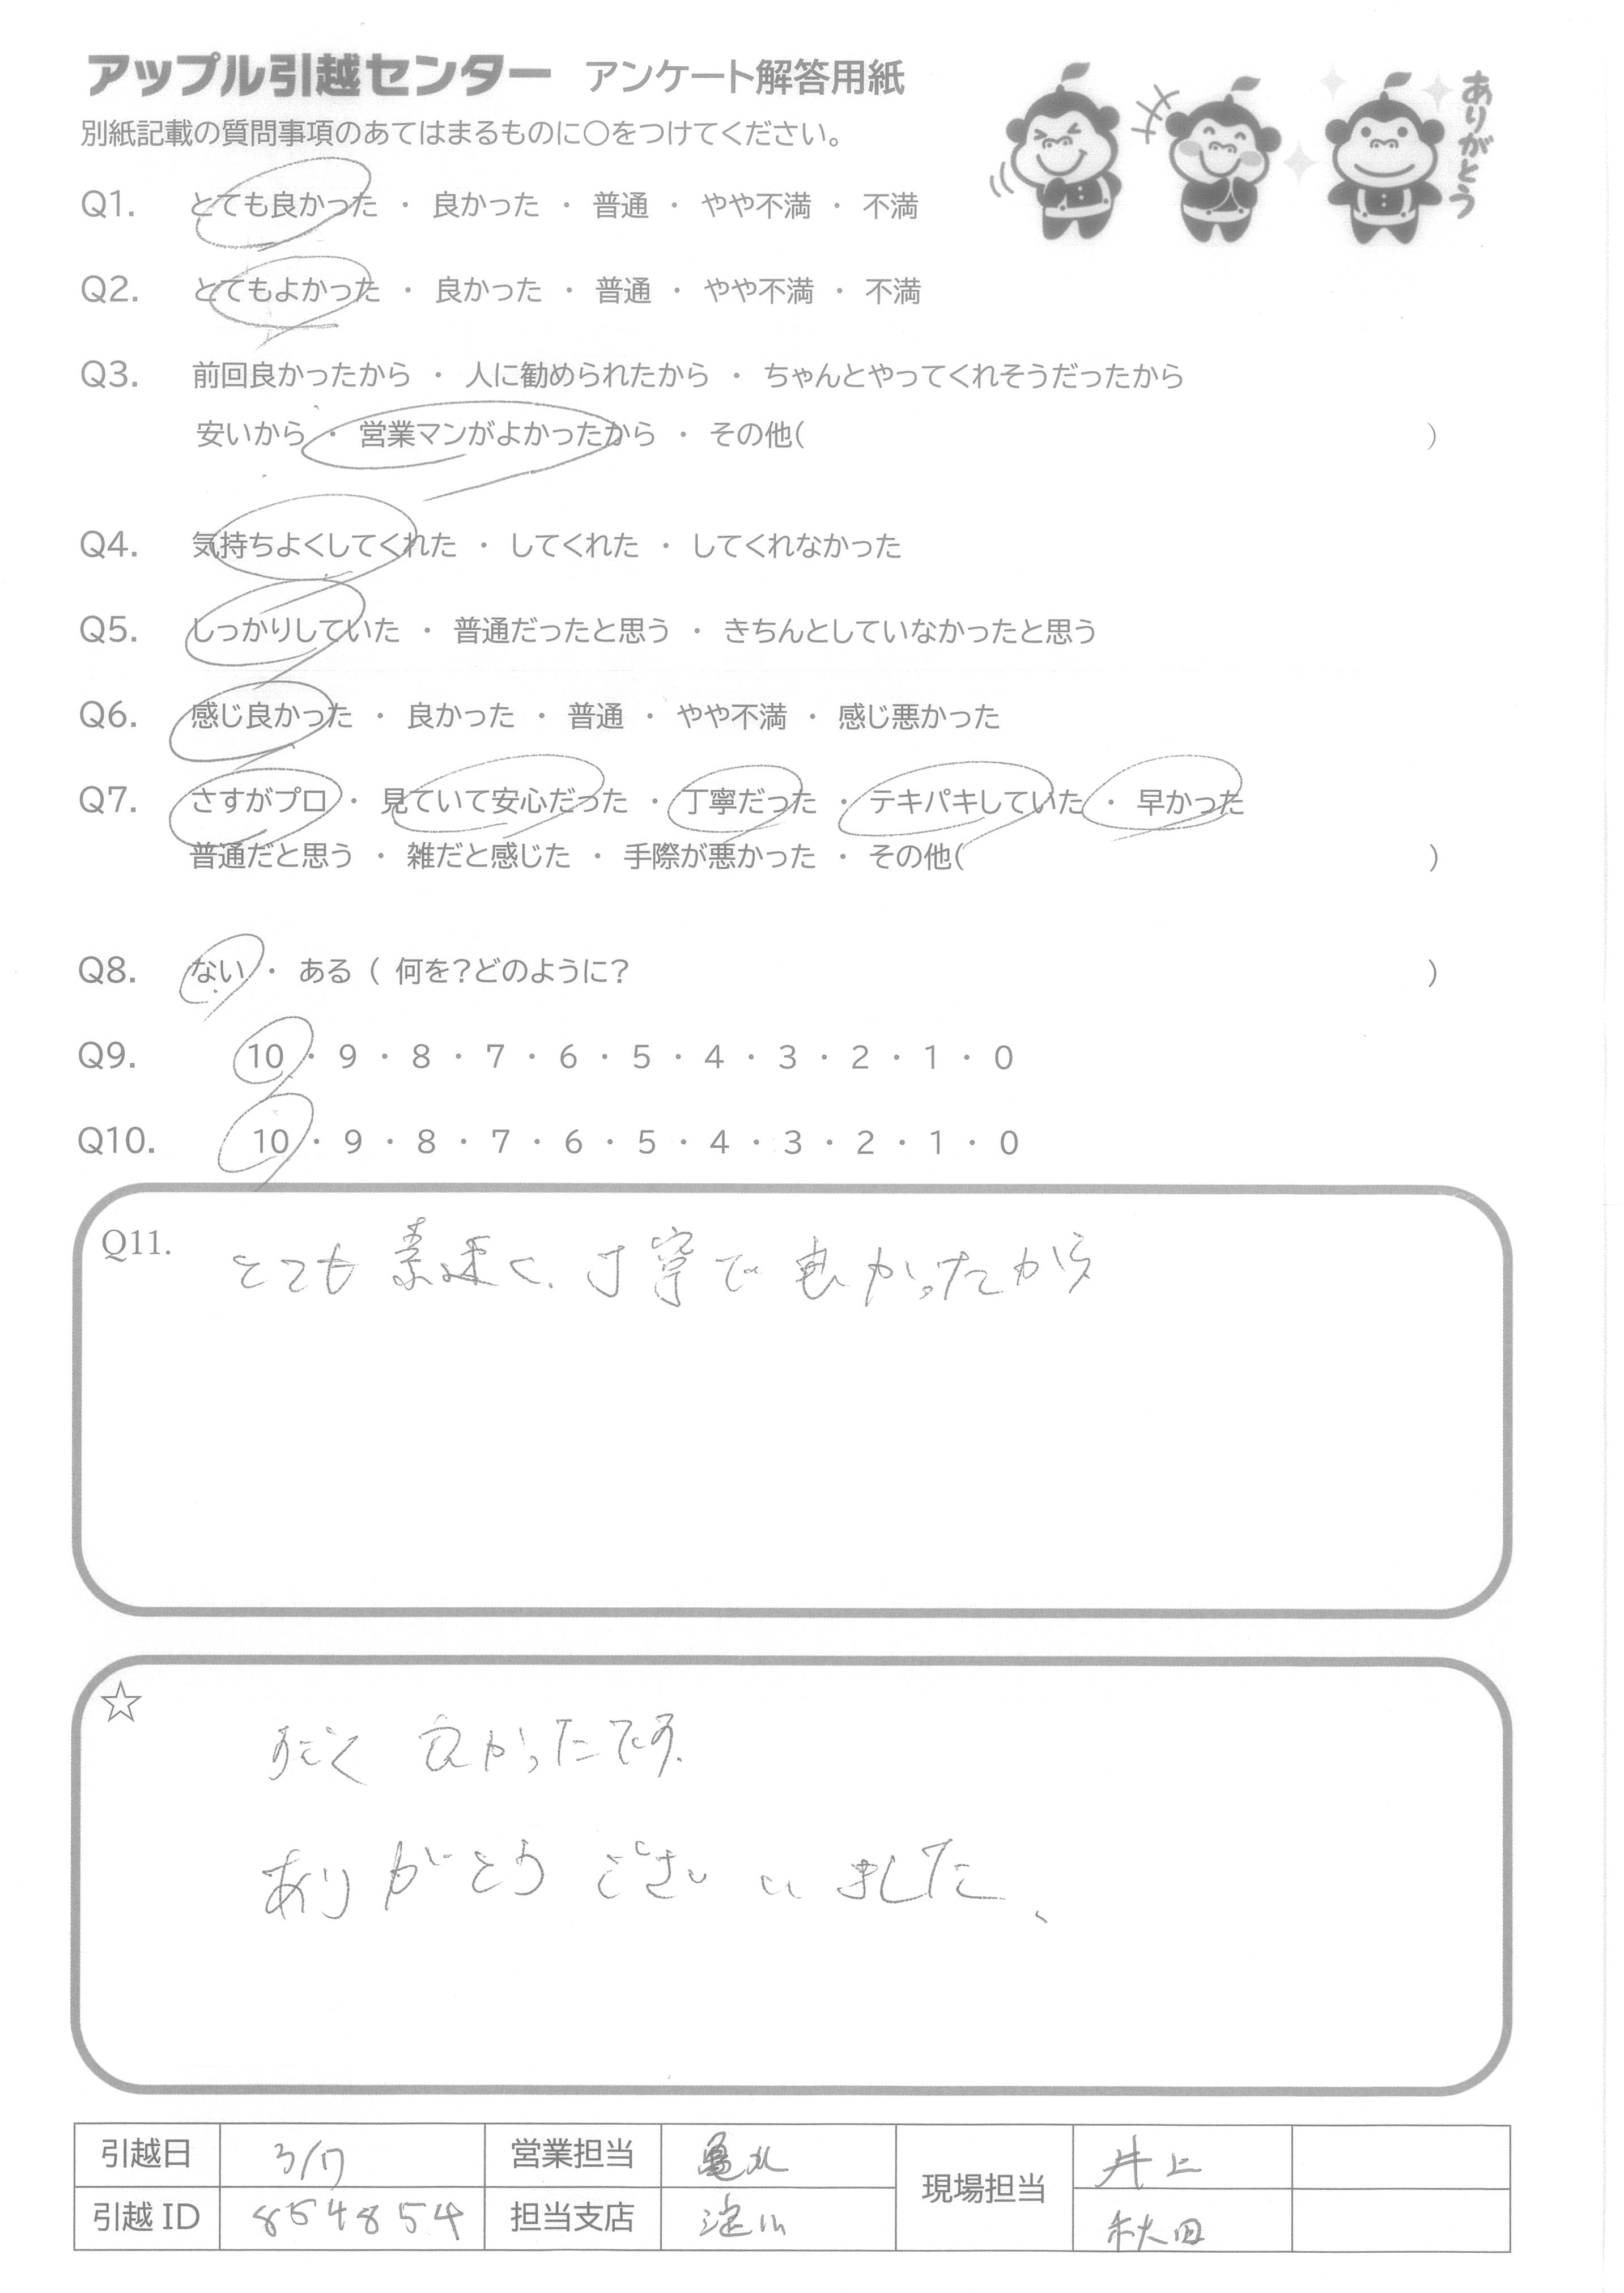 アップル引越センター アンケート解答用紙
ありがとう
別紙記載の質問事項のあてはまるものに○をつけてください。
Q1. とても良かった ・ 良かった ・ 普通 ・ やや不満 ・ 不満
Q2. とてもよかった ・ 良かった ・ 普通 ・ やや不満 ・ 不満
Q3. 前回良かったから ・ 人に勧められたから ・ ちゃんとやってくれそうだったから
安いから ・ 営業マンがよかったから ・ その他( )
Q4. 気持ちよくしてくれた ・ してくれた ・ してくれなかった
Q5. しっかりしていた ・ 普通だったと思う ・ きちんとしていなかったと思う
Q6. 感じ良かった ・ 良かった ・ 普通 ・ やや不満 ・ 感じ悪かった
Q7. さすがプロ ・ 見ていて安心だった ・ 丁寧だった ・ テキパキしていた ・ 早かった
普通だと思う ・ 雑だと感じた ・ 手際が悪かった ・ その他( )
Q8. ない ・ ある ( 何を？どのように？ )
Q9. 10 ・ 9 ・ 8 ・ 7 ・ 6 ・ 5 ・ 4 ・ 3 ・ 2 ・ 1 ・ 0
Q10. 10 ・ 9 ・ 8 ・ 7 ・ 6 ・ 5 ・ 4 ・ 3 ・ 2 ・ 1 ・ 0
Q11. とても素速く、丁寧で良かったから
☆
すごく 良かったです。
ありがとうございました、
引越日 3/17 営業担当 現場担当 井上
引越ID 854854 担当支店 淀川 秋田